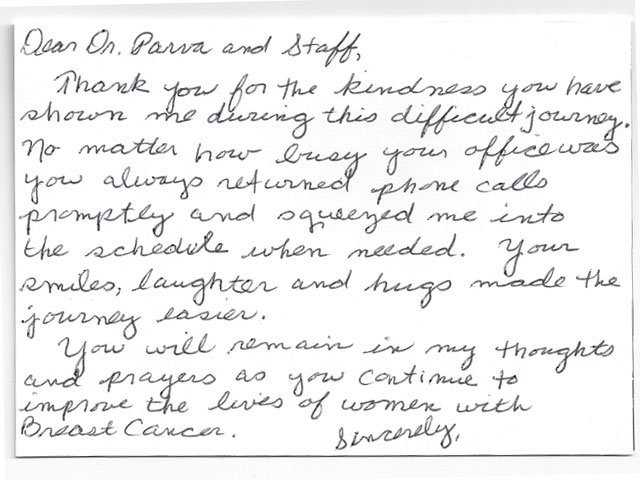 Dear Dr. Parva and Staff,
Thank you for the kindness you have
shown me during this difficult journey.
No matter how busy your office was
you always returned phone calls
promptly and squeezed me into
the schedule when needed. Your
smiles, laughter and hugs made the
journey easier.
You will remain in my thoughts
and prayers as you continue to
improve the lives of women with
Breast Cancer.
Sincerely,